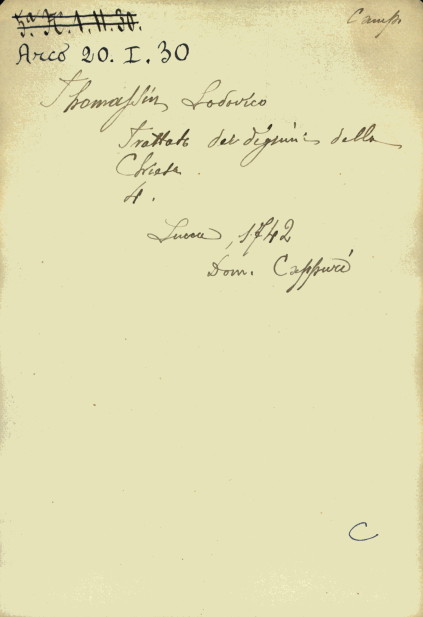 5.ª K. 1. II. 30.
Camp.
Arco 20. I. 30
Thomassin Lodovico
Trattato dei digiuni della
Chiesa
4.
Lucca, 1742
Dom. Cappuri
C